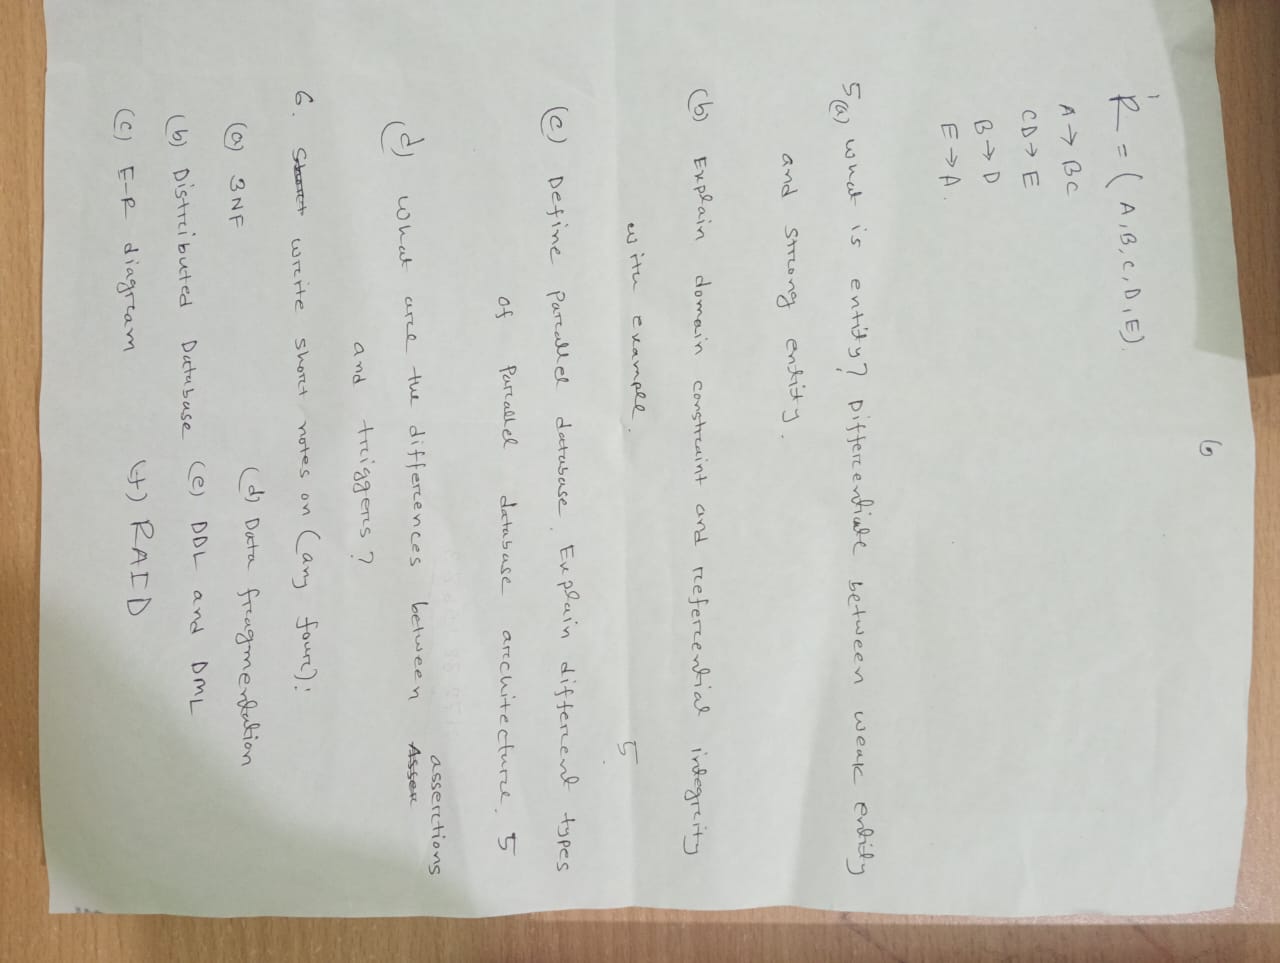 6
R = (A,B,C,D,E).
A → BC
CD → E
B → D
E → A.
5(a) What is entity? Differentiate between weak entity
and strong entity.
(b) Explain domain constraint and referential integrity
with example. 5
(c) Define parallel database. Explain different types
of parallel database architecture. 5
(d) What are the differences between Asser assertions
and triggers?
6. Short write short notes on (any four):
(a) 3NF (d) Data fragmentation
(b) Distributed Database (e) DDL and DML
(c) E-R diagram (f) RAID